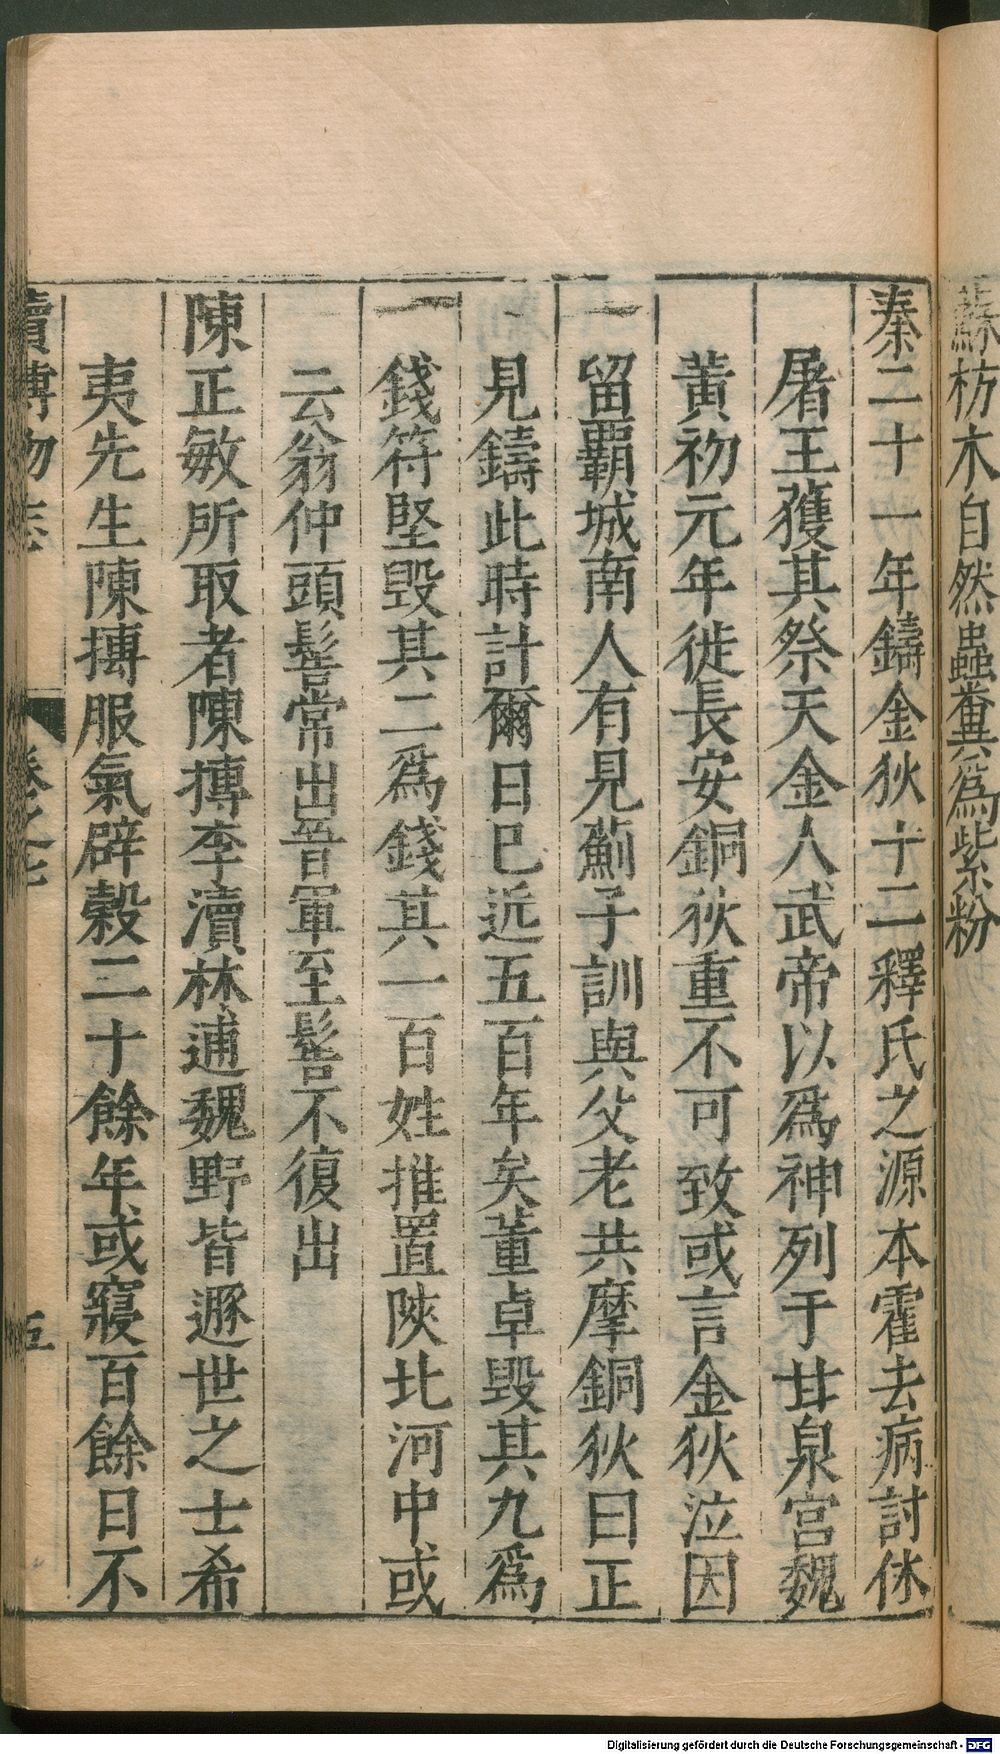 蘇枋木自然蟲糞爲紫粉
秦二十一年鑄金狄十二釋氏之源本霍去病討休
屠王獲其祭天金人武帝以爲神列于甘泉宮魏
黃初元年徙長安銅狄重不可致或言金狄泣因
留覇城南人有見薊子訓與父老共摩銅狄曰正
見鑄此時計爾日已近五百年矣董卓毀其九爲
錢符堅毀其二爲錢其一百姓推置陝北河中或
云翁仲頭髻常出晉軍至髻不復出
陳正敏所取者陳摶李瀆林逋魏野皆遯世之士希
夷先生陳摶服氣辟榖二十餘年或寢百餘日不
續博物志 卷之七 五
Digitalisierung gefördert durch die Deutsche Forschungsgemeinschaft - DFG